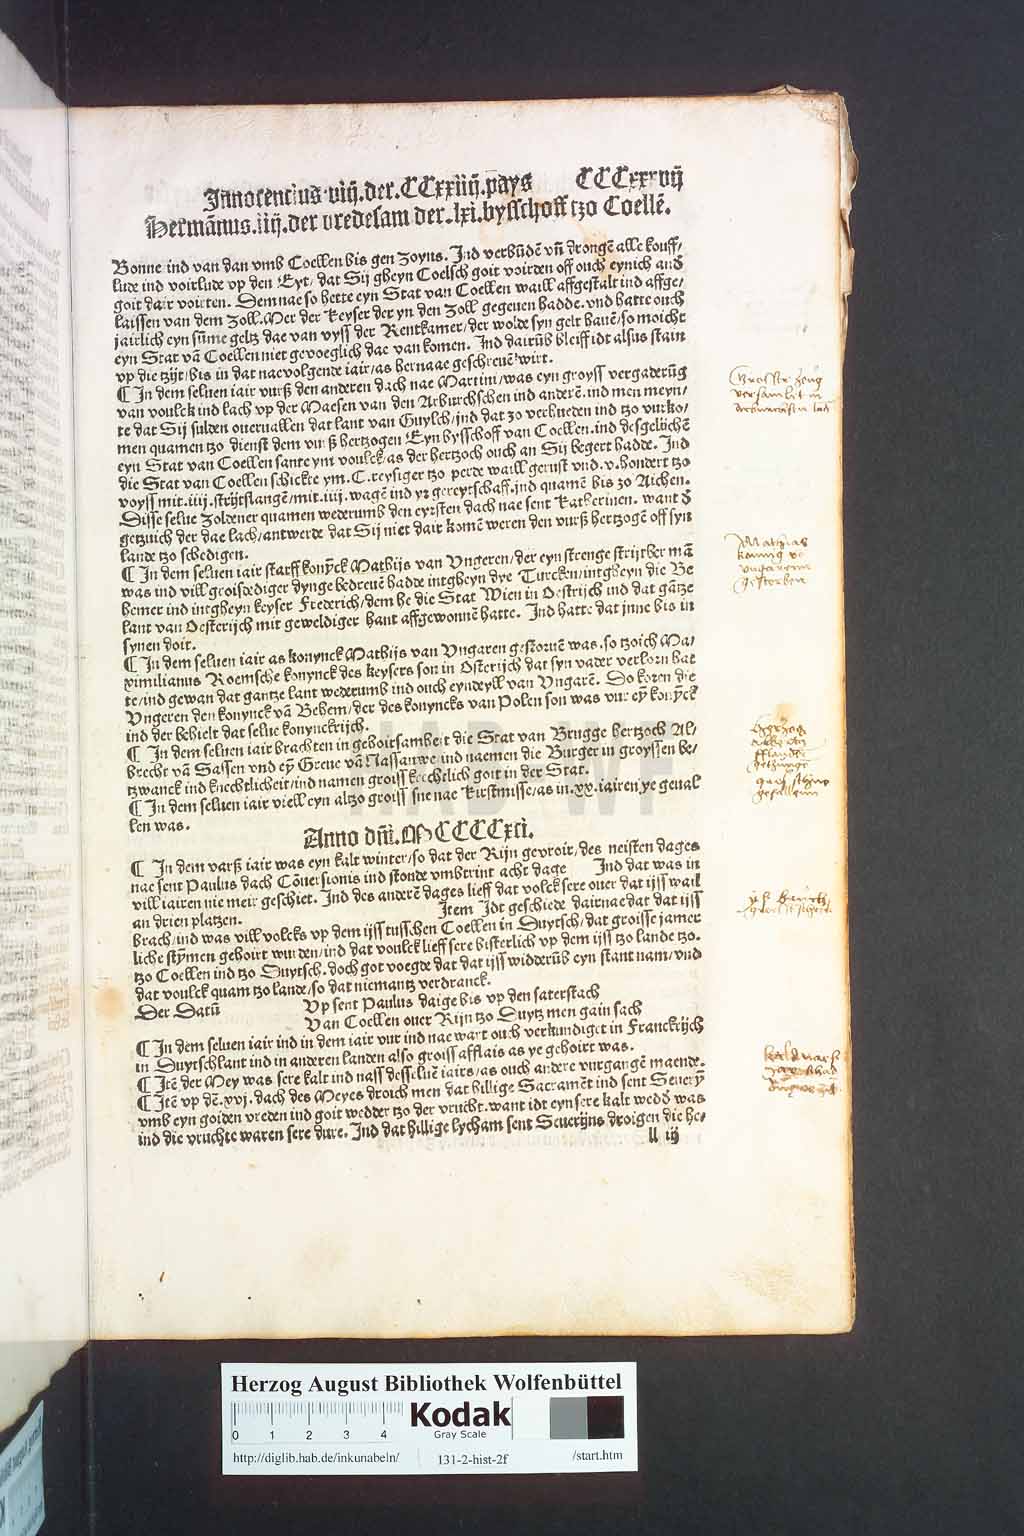 Innocencius viij. der. CCxxiiij. pays CCCxxxvij
Hermãnus. iiij. der vredesam der. lxi. bysschoff tzo Coellẽ.
Bonne ind van dan vmb Coellen bis gen Zoyns. Ind verbũdẽ vñ drongẽ alle kouff/
lude ind voirlude vp den Eyt/ dat Sij gheyn Coelsch goit voirden off ouch eynich and̃
goit dair voirten. Dem nae so hette eyn Stat van Coellen waill affgestalt ind affge/
laissen van dem Zoll. Mer der Keyser der yn den Zoll gegeuen hadde. vnd hatte ouch
jairlich eyn sũme geltz dae van vyss der Rentkamer/ der wolde syn gelt hauẽ/ so moicht
eyn Stat vã Coellen niet gevoeglich dae van komen. Ind dairũb bleiff idt alsus stain
vp die tzijt/ bis in dat naevolgende iair/ as hernaae geschreuẽ wirt.
¶ In dem seluen iair vurß den anderen dach nae Martini/ was eyn groyss vergaderũg
van voulck ind lach vp der Maesen van den Arburchschen ind anderẽ. ind men meyn/
te dat Sij sulden ouervallen dat lant van Guylch/ ind dat zo verhueden ind tzo vurko/
men quamen tzo dienst dem vurß hertzogen Eyn bysschoff van Coellen. ind desgelychẽ
eyn Stat van Coellen sante ym voulck/ as der hertzoch ouch an Sij begert hadde. Ind
die Stat van Coellen schickte ym. C. reysiger tzo perde waill gerust vnd. v. hondert tzo
voyss mit. iiij. strijtslangẽ/ mit. iiij. wagẽ ind yr gereytschaff. ind quamẽ bis zo Aichen.
Disse selue Zoldener quamen wederumb den eyrsten dach nae sent Katherinen. want d̃
getzuich der dae lach/ antwerde dat Sij niet dair komẽ weren den vurß hertzogẽ off syn
lande tzo schedigen.
¶ In dem seluen iair starff konỹck Mathijs van Vngeren/ der eyn strenge strijtber mã
was ind vill groisßediger dynge bedreuẽ hadde intgheyn dye Turcken/ intgheyn die Be
hemer ind intgheyn keyser Frederich/ dem he die Stat Wien in Oestrijch ind dat gãtze
lant van Oesterijch mit geweldiger hant affgewonnẽ hatte. Ind hatte dat jnne bis in
synen doit.
¶ In dem seluen iair as konynck Mathijs van Vngaren gestoruẽ was. so tzoich Ma/
ximilianus Roemsche konynck des keysers son in Osterijch dat syn vader verlorn hat
te/ ind gewan dat gantze lant wederumb ind ouch eyndeyll van Vngarẽ. Do koren die
Vngeren den konynck vã Behem/ der des konyncks van Polen son was vur eỹ konỹck
ind der behielt dat selue konynckrijch.
¶ In dem seluen iair brachten in gehoirsamheit die Stat van Brugge hertzoch Al/
brecht vã Sassen vnd eỹ Greue vã Nassauwe ind naemen die Burger in groyssen be/
tzwanck ind knechtlicheit/ ind namen groiss kirchlich goit in der Stat.
¶ In dem seluen iair viell eyn altzo groiss sne nae Kirstmisse/ as in. xx. iairen ye geual
len was.
Anno dñi. M CCCCxci.
¶ In dem vurß iair was eyn kalt winter/ so dat der Rijn gevroir/ des neisten dages
nae sent Paulus dach Cõuersionis ind stonde vmbtrint acht dage Ind dat was in
vill iairen nie meir geschiet. Ind des anderẽ dages lieff dat volck sere ouer dat ijss wail
an drien platzen. Item Idt geschiede dairnae dat dat ijss
brach/ ind was vill volcks vp dem ijss tusschen Coellen in Duytsch/ dat groisse jamer
liche stỹmen gehoirt wurden/ ind dat voulck lieff sere bisterlich vp dem ijss tzo lande tzo.
tzo Coellen ind tzo Duytsch. doch got voegde dat dat ijss widderũb eyn stant nam/ vnd
dat voulck quam tzo lande/ so dat niemantz verdranck.
Der Datũ Vp sent Paulus daige bis vp den saterstach
Van Coellen ouer Rijn tzo Duytz men gain sach
¶ In dem seluen iair ind in dem iair vur ind nae wart ouch verkundiget in Franckrijch
in Duytschlant ind in anderen landen also groiss afflais as ye gehoirt was.
¶ Itẽ der Mey was sere kalt ind nass desseluẽ iairs/ as ouch andere vurgangẽ maende.
¶ Itẽ vp dẽ. xvj. dach des Meyes droich men dat hillige Sacramẽt ind sent Seuerỹ
vmb eyn goiden vreden ind goit wedder tzo der vrucht. want idt eyn sere kalt wedd̃ was
ind die vruchte waren sere dure. Ind dat hillige lycham sent Seuerijns droigen die he/
ll iij
Mathias
konnig vo
vngerenn
gestorben
Herzog August Bibliothek Wolfenbüttel
0 1 2 3 4
Kodak
Gray Scale
http://diglib.hab.de/inkunabeln/ 131-2-hist-2f /start.htm
HAB-WF